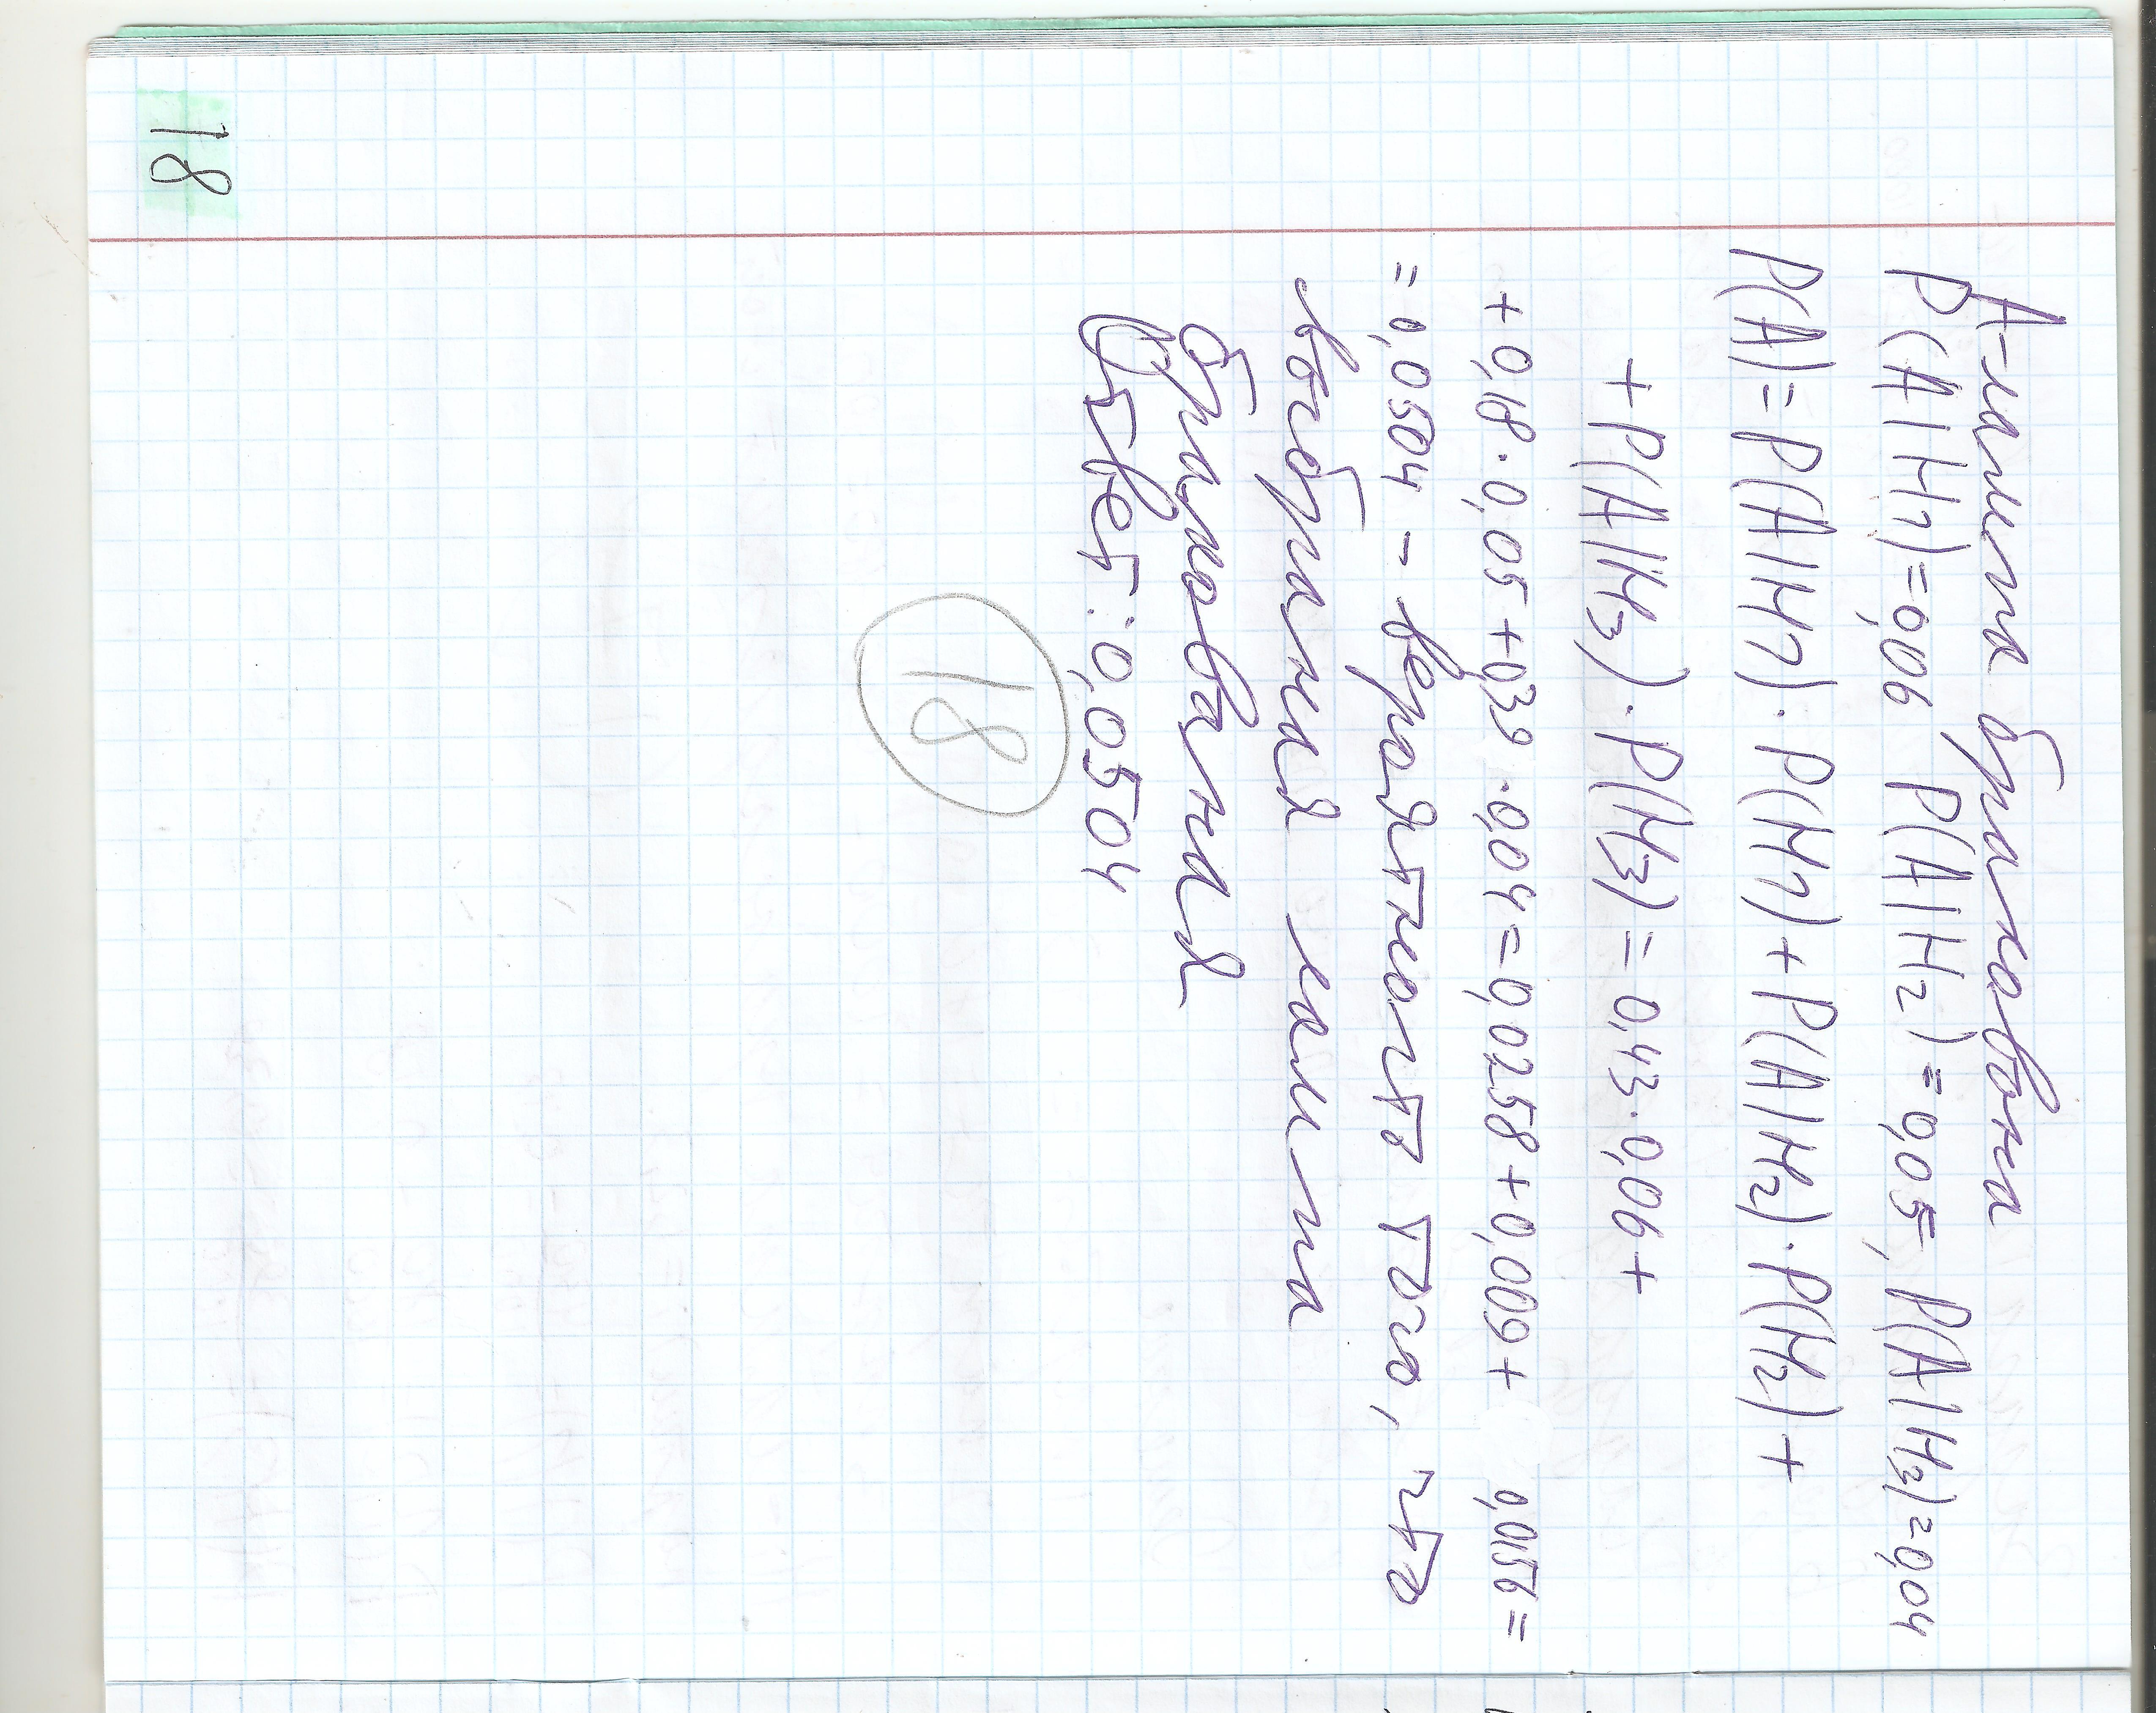 A - лампа бракована
P(A|H1)=0,06 P(A|H2)=0,05, P(A|H3)=0,04
P(A)=P(A|H1)·P(H1)+P(A|H2)·P(H2)+
+P(A|H3)·P(H3)=0,43·0,06+
+0,18·0,05+0,39·0,04=0,0258+0,009+ 0,0156=
=0,0504 - вероятность того, что
выбранная лампа
бракованная
Ответ: 0,0504
18
18